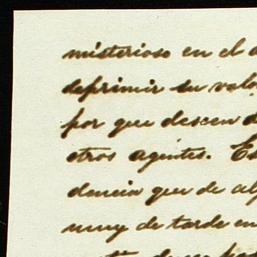 misterioso en el
deprimir su valo
por que descen d
otros agentes. Es
dencia que de al
muy de tarde en